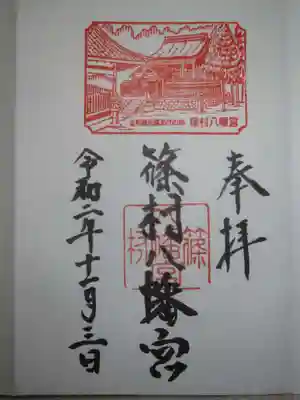 奉拝
篠村八幡宮
令和二年十一月三日
篠村八幡宮